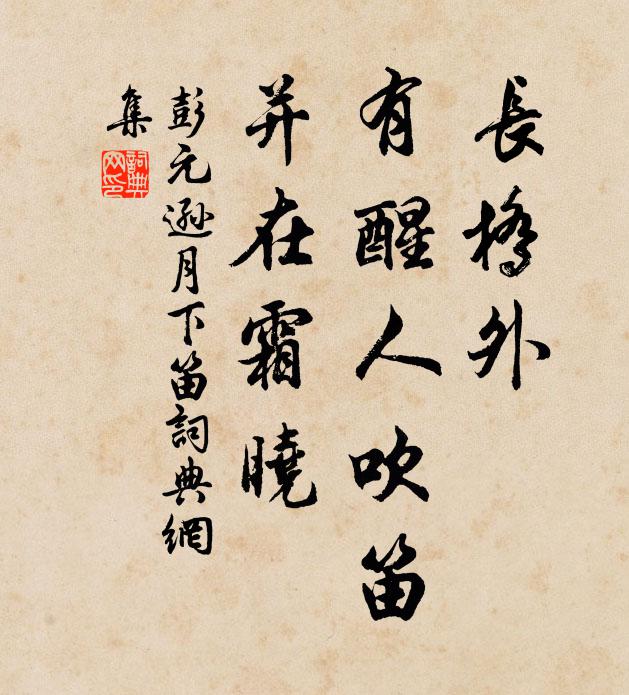 長橋外
有醒人吹笛
并在霜曉
彭元遜月下笛詞典網
集
詞典
网印